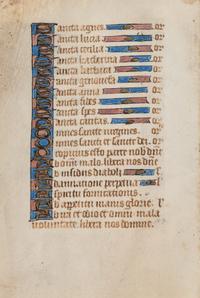 Sancta agnes. or
Sancta lucia. or
Sancta cecilia. or
Sancta katherina or
Sancta barbara or
Sancta genovefa or
Sancta anna or
Sancta fides or
Sancta spes or
Sancta caritas. or
Omnes sancte virgines. or
Omnes sancti et sancte dei. or
Propicius esto parce nob dñe
Ab omi malo. libera nos dñe
Ab insidiis diaboli
A damnatione perpetua
A spiritu fornicationis
Ab appetitu inanis glorie. l
voluntate. libera nos domine.